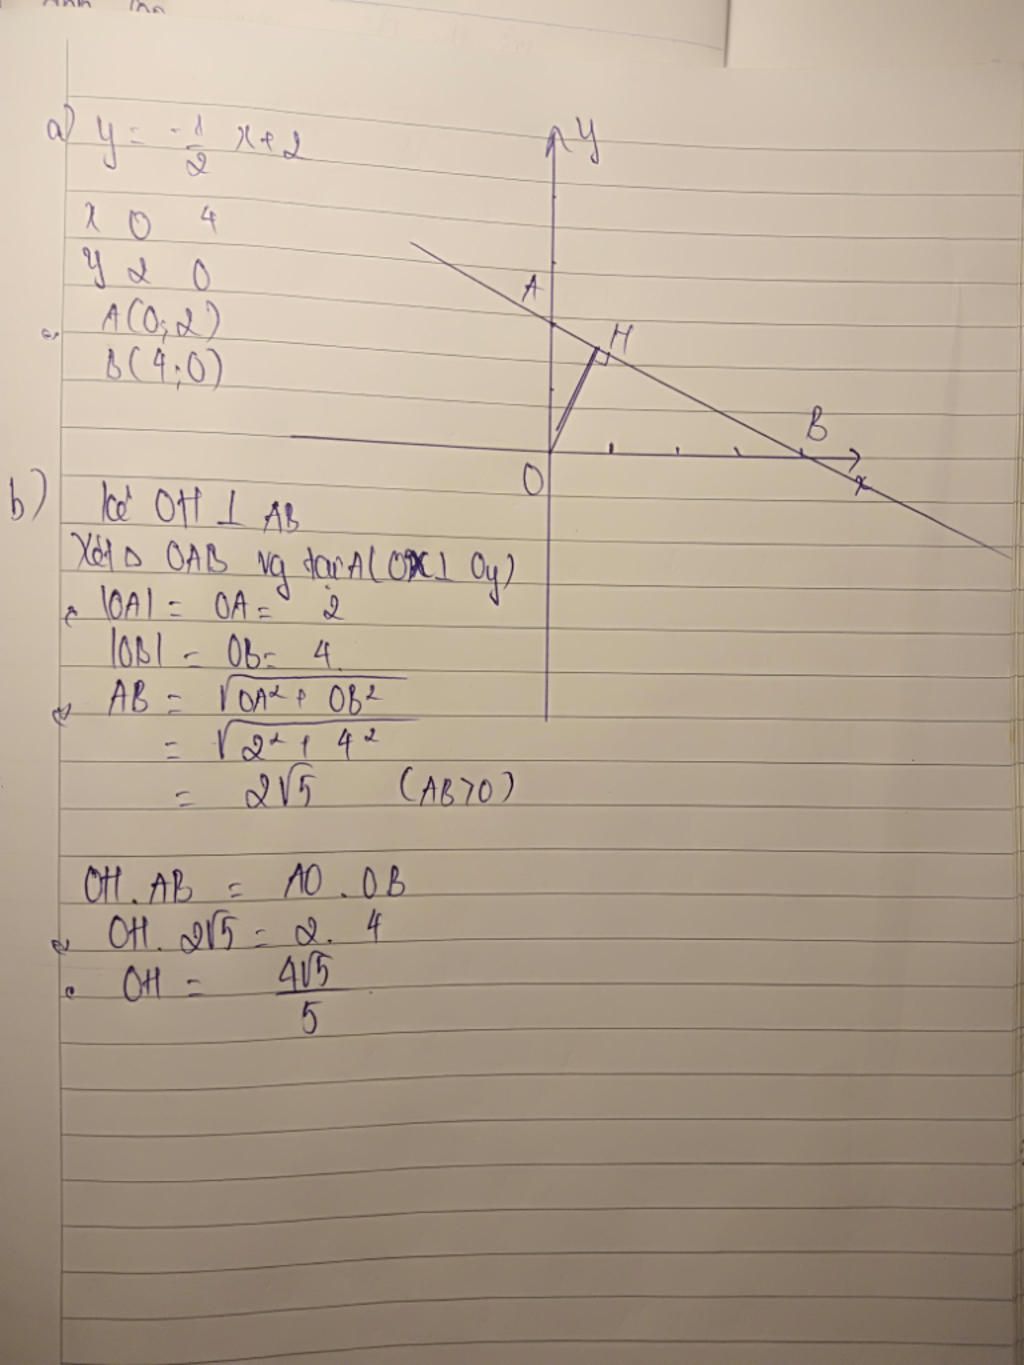 a) y = -1/2 x + 2
x 0 4
y 2 0
A(0; 2)
B(4; 0)
y
A
H
B
O
x
b) kẻ OH ⊥ AB
Xét Δ OAB vg tại A (Ox ⊥ Oy)
|OA| = OA = 2
|OB| = OB = 4
AB = √(OA² + OB²)
= √(2² + 4²)
= 2√5 (AB>0)
OH. AB = AO . OB
OH. 2√5 = 2. 4
OH = 4√5/5